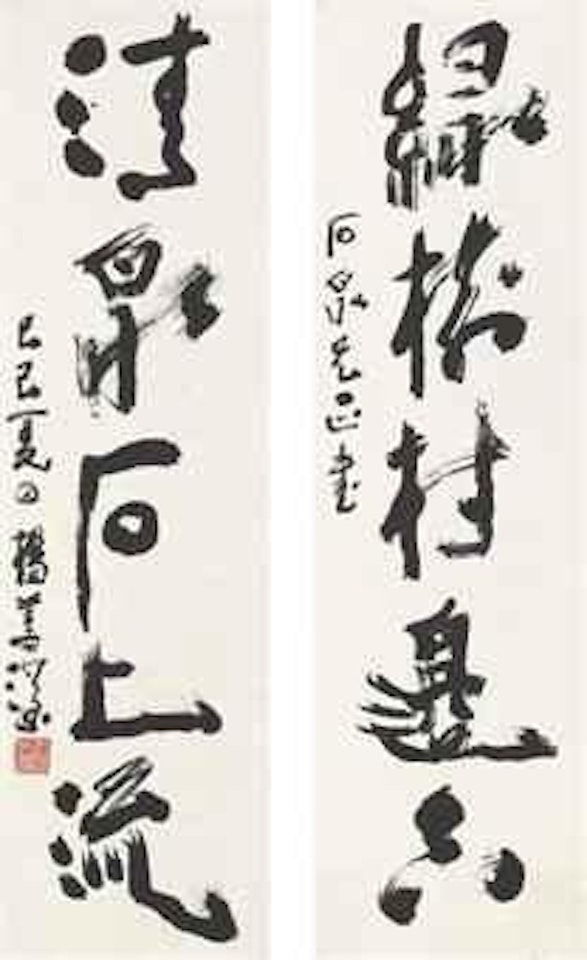 綠樹村邊合
石泉兄正
清泉石上流
己巳夏日楊善深